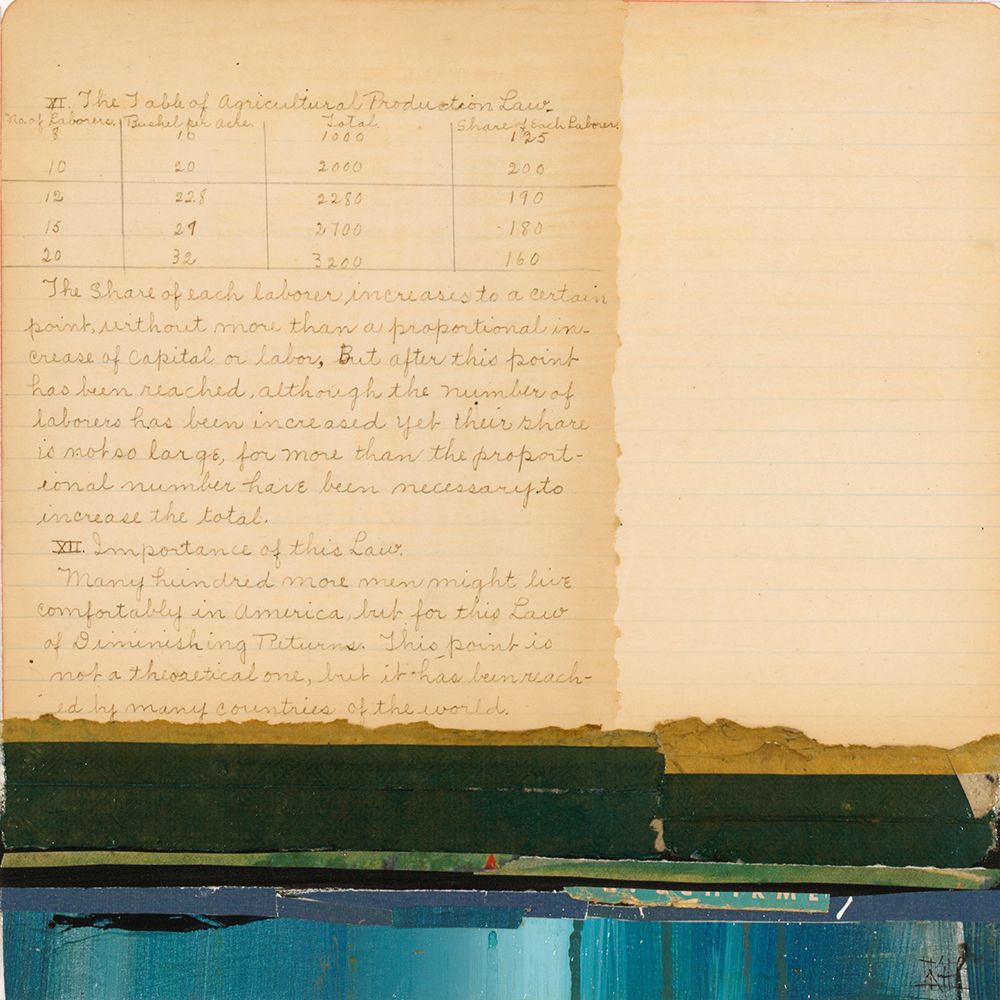 XI. The Table of Agricultural Production Law.
No. of Laborers. Bushel per Acre. Total. Share of Each Laborer.
8 10 1000 125
10 20 2000 200
12 22.8 2280 190
15 27 2700 180
20 32 3200 160
The Share of each laborer increases to a certain
point, without more than a proportional in-
crease of Capital or labor, But after this point
has been reached, although the number of
laborers has been increased yet their share
is not so large, for more than the proport-
ional number have been necessary to
increase the total.
XII. Importance of this Law.
Many hundred more men might live
comfortably in America, but for this Law
of Diminishing Returns. This point is
not a theoretical one, but it has been reach-
ed by many countries of the world.